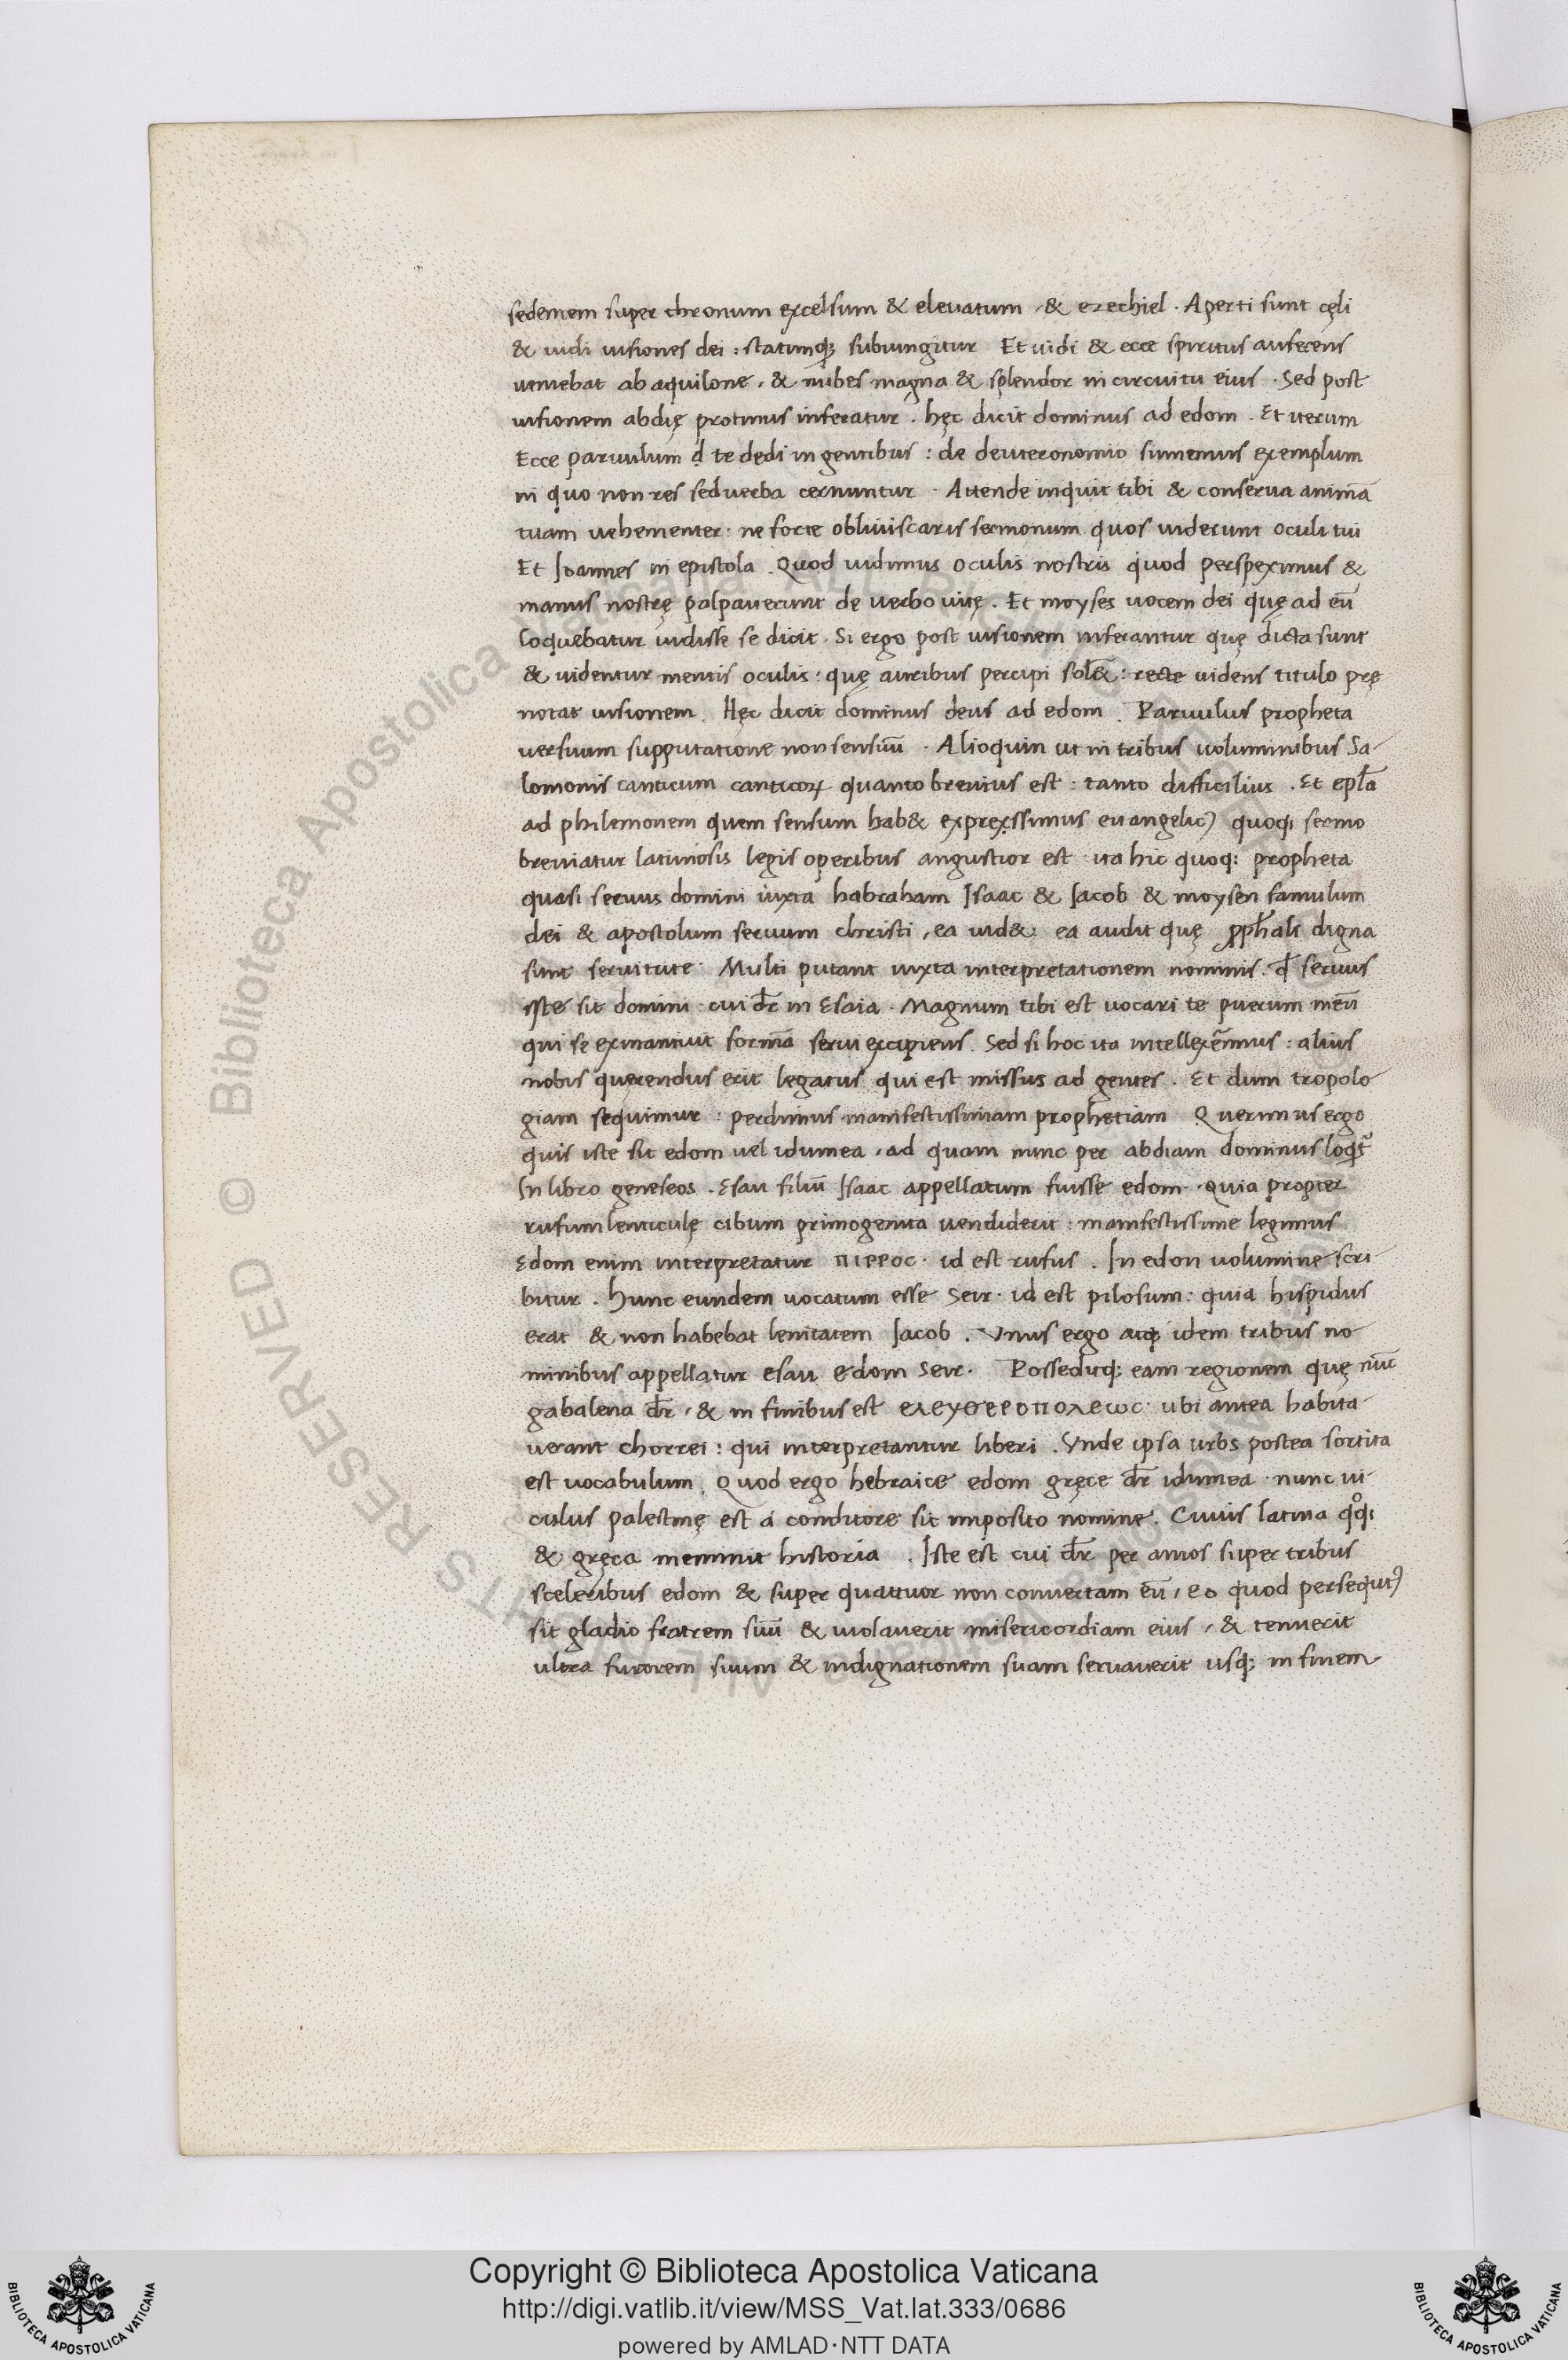 sedentem super thronum excelsum & eleuatum, & ezechiel. Aperti sunt cęli
& uidi uisiones dei: statimq; subiungitur Et uidi & ecce spiritus auferens
ueniebat ab aquilone, & nubes magna & splendor in circuitu eius. Sed post
uisionem abdię protinus inferatur. hęc dicit dominus ad edom. Et iterum
Ecce paruulum q̣ te dedi in gentibus: de deuteronomio sumemus exemplum
in quo non res sed uerba cernuntur. Attende inquit tibi & conserua animā
tuam uehementer: ne forte obliuiscaris sermonum quos uiderunt oculi tui
Et Ioannes in epistola. Quod uidimus oculis nostris quod perspeximus &
manus nostrę palpauerunt de uerbo uitę. Et moyses uocem dei quę ad eū
loquebatur uidisse se dicit. Si ergo post uisionem inferantur quę dicta sunt
& uidentur mentis oculis: quę auribus percipi sol&: recte uidens titulo prę
notat uisionem. Hęc dicit dominus deus ad edom. Paruulus propheta
uersuum supputatione non sensuū. Alioquin ut in tribus uoluminibus Sa-
lomonis canticum canticoꝝ quanto breuius est: tanto difficilius. Et epl̄a
ad philemonem quem sensum hab& expręssimus euangelicꝰ quoq; sermo
breuiatur latiniosis legis operibus angustior est: ita hic quoq; propheta
quasi seruus domini iuxta habraham Isaac & Iacob & moysen famulum
dei & apostolum seruum christi, ea uid&: ea audit quę ꝓph̄ali digna
sunt seruitute. Multi putant iuxta interpretationem nominis. qđ seruus
iste sit domini: cui dr̄ in Esaia. Magnum tibi est uocari te puerum meū
qui se exinaniuit formā serui excipiens. Sed si hoc ita intellexēmus: alius
nobis querendus erit legatus qui est missus ad gentes. Et dum tropolo
giam sequimur: perdimus manifestissimam prophetiam. Querimus ergo
quis iste sit edom uel idumea, ad quam nunc per abdiam dominus loqt̄
In libro geneseos. Esau filiū Isaac appellatum fuisse edom. quia propter
rufum lenticulę cibum primogenita uendiderit: manifestissime legimus
Edom enim interpretatur πιρρος· id est rufus. In edon uolumine scri-
bitur. hunc eundem uocatum esse Seir· id est pilosum: quia hispidus
erat & non habebat lenitatem Iacob. Vnus ergo atq; idem tribus no
minibus appellatur esau edom Seir. Posseditq; eam regionem quę nūc
gabalena dr̄, & in finibus est ελευθεροπολεως· ubi antea habita-
uerant chorrei: qui interpretantur liberi. Vnde ipsa urbs postea sortita
est uocabulum. Quod ergo hebraice edom gręce dr̄ idumea· nunc ui-
culus palestinę est a conditore sic imposito nomine. Cuius latina qͦq;
& gręca meminit historia. Iste est cui dr̄ per amos super tribus
sceleribus edom & super quattuor non conuertam eū, eo quod persequtꝰ
sit gladio fratrem suū & uiolauerit misericordiam eius, & tenuerit
ultra furorem suum & indignationem suam seruauerit usq; in finem
Copyright © Biblioteca Apostolica Vaticana
http://digi.vatlib.it/view/MSS_Vat.lat.333/0686
powered by AMLAD·NTT DATA